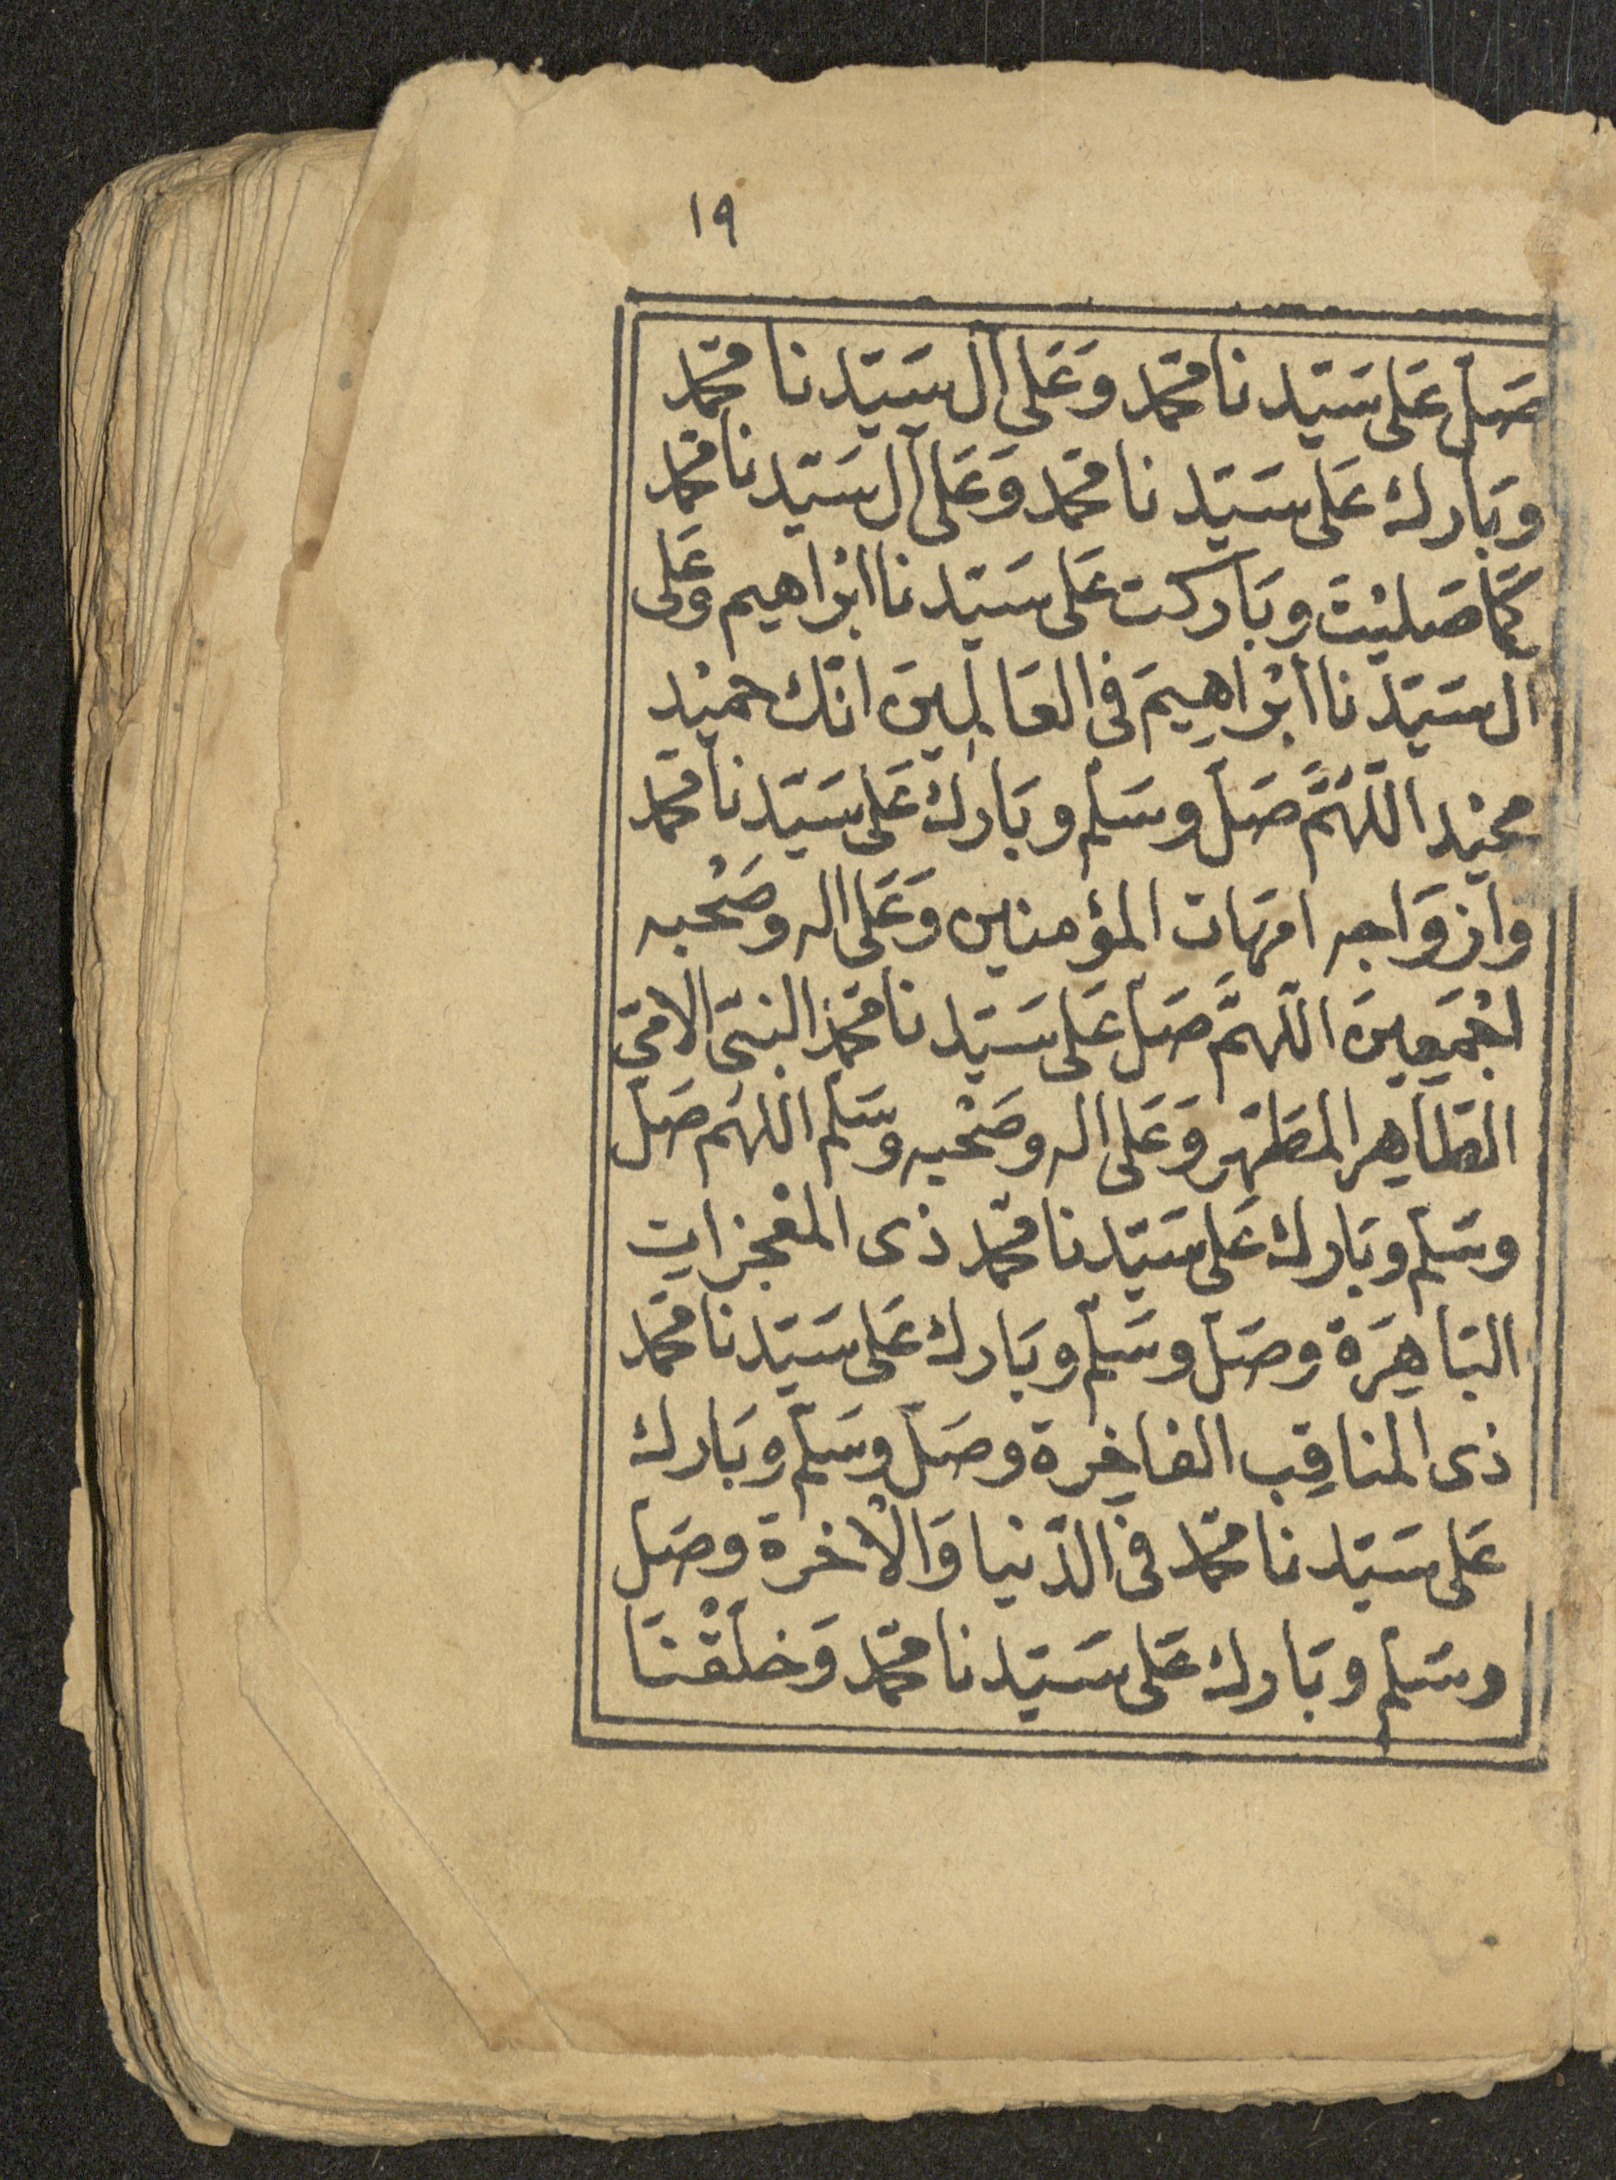 ١٩
صَلّ عَلى سَيّدنا محمّد وَعَلى آل سَيّدنا محمّد
وبَارك عَلى سَيّدنا محمّد وَعَلى آل سَيّدنا محمّد
كمَا صَليْتَ وبَاركت عَلى سَيّدنا ابْراهيم وعَلى
آل سَيّدنا ابْراهِيمَ فى العَالمِينَ انّك حميْد
مجيْد اللّهُمَّ صَلّ وسَلم وبَارك عَلى سَيّدنا محمّد
وازوَاجه امّهات المؤمنين وَعَلى اله وصَحْبه
اجْمَعِينَ اللّهمَّ صَلّ عَلى سَيّدنا محمّد النبىّ الامّى
الطاهِر المطَهّر وَعَلى اله وصَحْبه وسَلم اللّهم صَلّ
وسَلم وبَارك عَلى سَيّدنا محمّد ذى المعْجزات
البَاهِرَة وصَلّ وسَلم وبَارك عَلى سَيّدنا محمّد
ذى المناقِب الفاخِرة وصَلّ وسَلم وبَارك
عَلى سَيّدنا محمّد فى الدّنيا وَالْاخرة وصَلّ
وسَلم وبَارك عَلى سَيّدنا محمّد وَخلّقْنَا